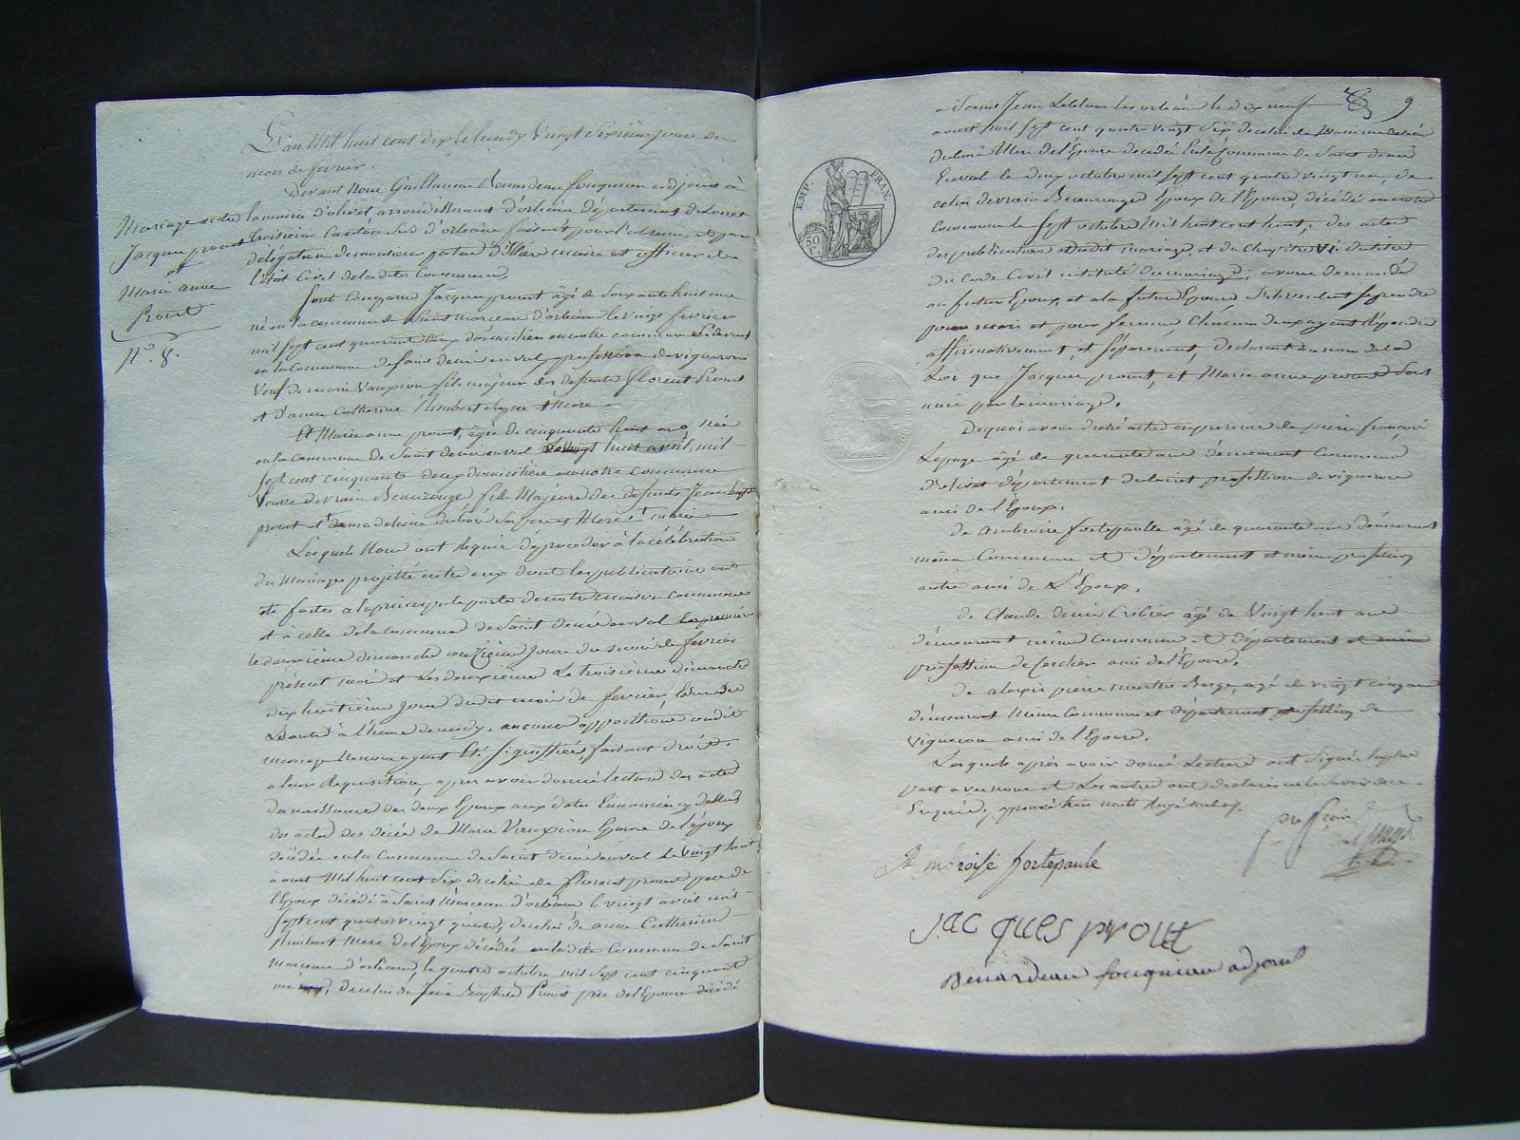 L'an Mil huit cent dix le lundy Vingt Sixième jour du
mois de février.
Devant Nous Guillaume Benardeau fouqueau adjoint à
la mairie d'olivet, arrondissement d'orléans département du Loiret
troisieme Canton Sud d'orléans faisant pour l'absence et par
délégation de monsieur maire et officier de
l'état Civil de ladite Commune
Mariage entre
Jacques prout
et
Marie anne
Prout
N.o 8.
Sont Comparus Jacques prout âgé de Soixante huit ans
né en la commune de Saint marceau d'orléans le vingt fevrier
mil sept cent quarante deux domicilié en notre commune
en la Commune de saint denis en val, profession de vigneron
Veuf de marie Vauxion fils majeur des defunts florent Prout
et d'anne Catherine Humbert Mere
Et Marie anne prout, âgée de cinquante huit ans, née
en la Commune de Saint denis en val huit avril, mil
sept cent cinquante deux domiciliée en notre commune
Veuve de vrain Beaurouge, fille Majeure des defunts Jean
prout et de madeleine ses pere et Mere
Lesquels Nous ont Requis de proceder à la célébration
du Mariage projetté entre eux dont les publications ont
été faites à la principale porte de notre maison commune
et à celle de la commune de Saint denis en val La premiere
le deuxième dimanche onzième jour du mois de février
présent mois et La deuxième Le troisième dimanche
dix huitième jour dudit mois de fevrier,
à l'heure de midy. aucune opposition audit
mariage Ne nous ayant été Signiffiée, faisant droit
a leur Requisition, apres avoir donné lecture des actes
de naissance des deux Epoux aux dates Enoncées cy dessus
des actes des décès de Marie Vauxion Epouse de l'époux
décédée en la Commune de Saint denis en val Le vingt huit
aout Mil huit cent Six de celui de florent prout pere de
l'Epoux décédé à Saint Marceau d'orléans le vingt avril mil
Sept cent quatre vingt de celui de anne Catherine
Humbert Mere de l'Epoux décédée en ladite Commune de Saint
Marceau d'orléans, le quatre octobre mil sept cent cinquante
de celui de Jean Baptiste Prout père de l'Epouse décédé
9
a Saint Jean Leblanc les orléans le dix neuf
aout mil sept cent quatre vingt Six de celui de
Mere de l'Epouse décédée En la Commune de Saint denis
En val le deux octobre mil sept cent quatre vingt un, de
celui de vrain Beaurouge Epoux de l'Epouse, décédé en notre
Commune le sept octobre Mil huit cent huit, des actes
de publications dudit mariage et du Chapitre VI du titre
du Code Civil intitulé du mariage; avons demandé
au futur Epoux et a la future Epouse S'ils veulent se prendre
pour mari et pour femme Chacun deux ayant Répondu
affirmativement, et Séparément, declarons au nom de la
Loi que Jacques prout, et Marie anne prout Sont
unis par le mariage.
De quoi avons dressé acte en présence de pierre françois
Lepage âgé de quarante ans demeurant Commune
d'olivet département du loiret profession de vigneron
ami de l'Epoux.
de Ambroise fortepaulle âgé de quarante ans demeurant
même Commune et département et même profession
autre ami de L'Epoux.
de Claude denis âgé de Vingt huit ans
demeurant même Commune et département
profession de ami de l'Epouse.
de aloyse pierre agé de vingt cinq ans
demeurant Même Commune et département profession de
Vigneron ami de l'Epouse.
Lesquels après avoir donné Lecture ont Signé
part avec nous et Les autres ont declaré ne le savoir de ce
Enquis
EMP. FRAN.
50 C.
Ambroise fortepaule
jacques prout
Benardeau fouqueau adjoint